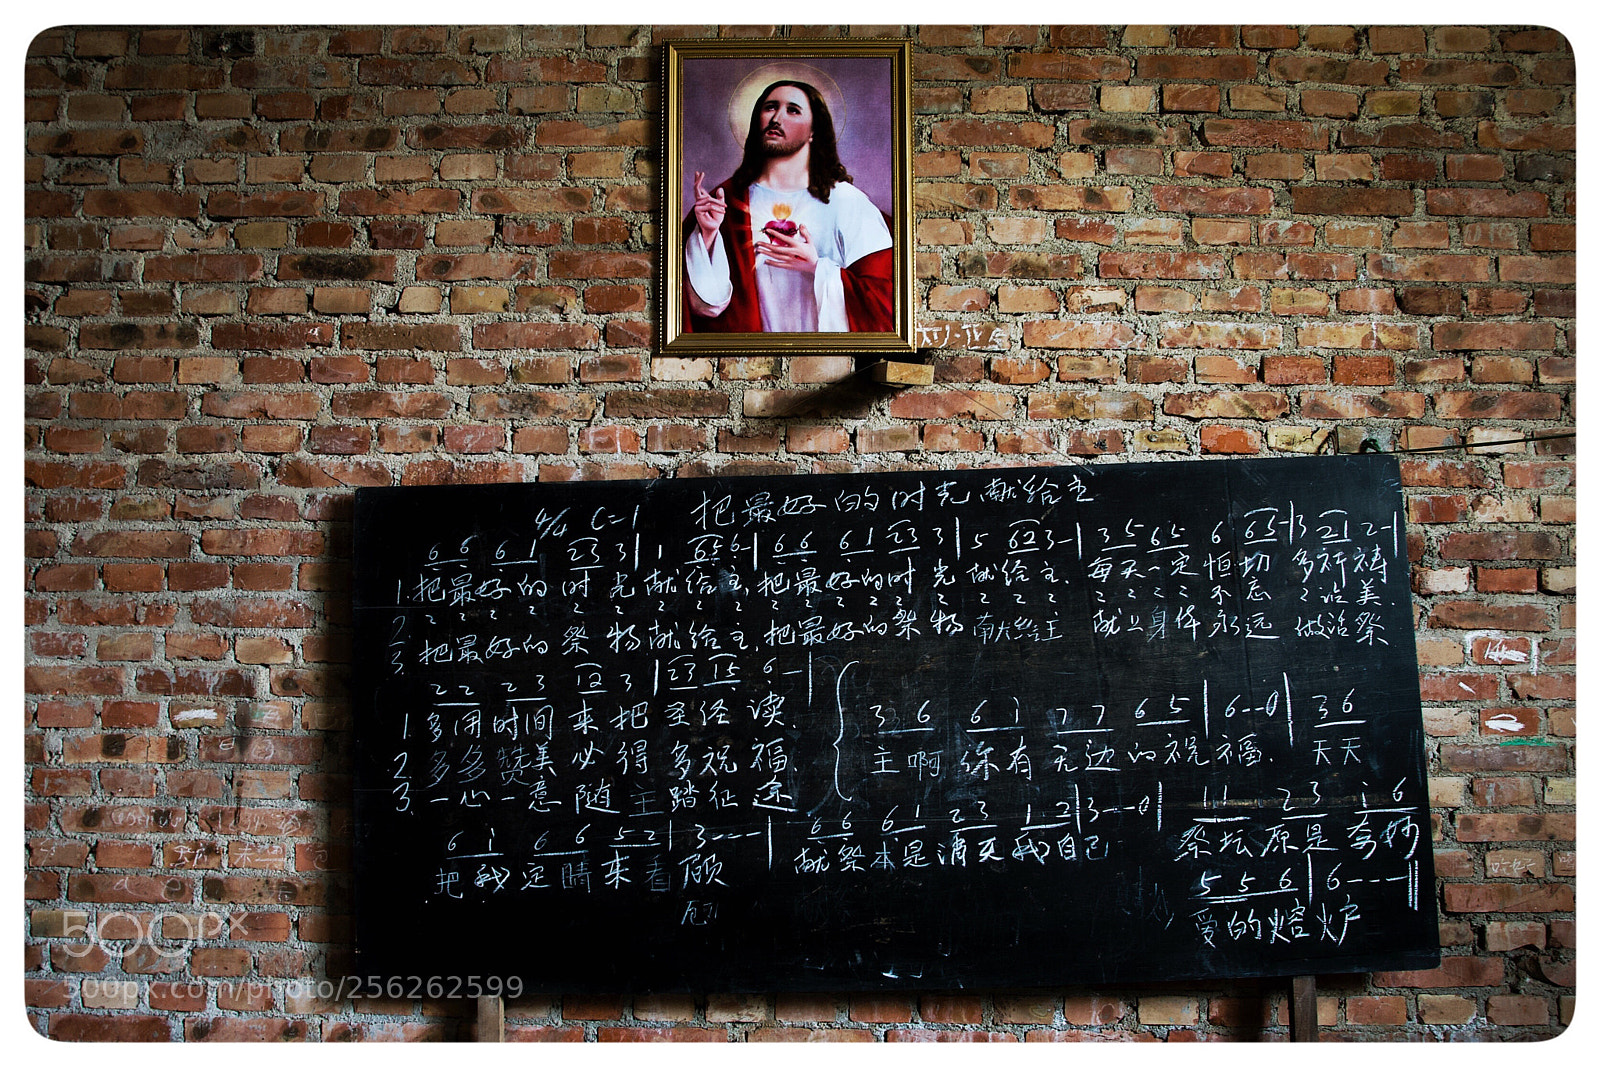 把最好的时光献给主
4/4 C=1
6 6 6 1 23 3 | 1 65 6- | 6 6 6 1 23 3 | 5 62 3- | 3 5 65 6 65- | 3 21 2- |
1. 把最好的时光献给主,把最好的时光献给主. 每天一定恒切多祈祷
2. 不忘 美.
3. 把最好的祭物献给主,把最好的祭物献给主 献上身体永远做活祭
2 2 2 3 12 3 | 23 15 6- |
1. 多用时间来把圣经读.
2. 多多赞美必得多祝福.
3. 一心一意随主踏征途
3 6 6 1 7 7 6 5 | 6--0 | 36
主啊 你有无边的祝福. 天天
6 1 6 6 5 2 | 3--- | 6 6 6 1 2 3 1.2 | 3---0 | 11 2 3 i 6
把我定睛来看顾 献祭本是消灭我自己 祭坛原是奇妙
5 5 6 | 6---
爱的熔炉
500px
500px.com/photo/256262599